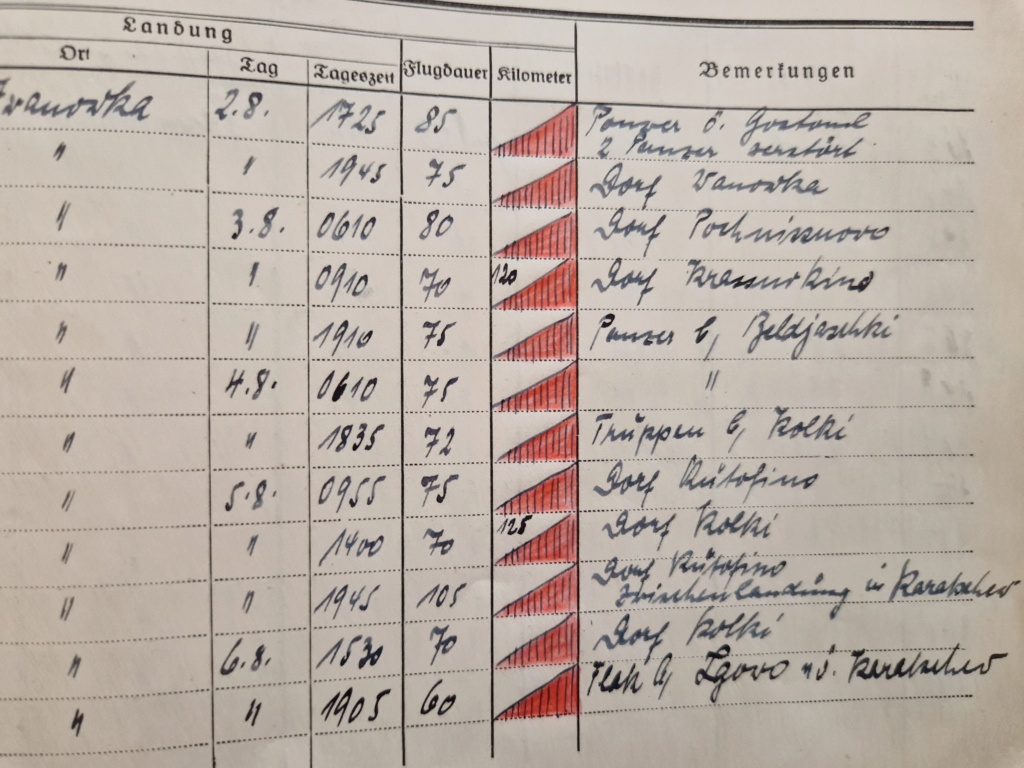 Landung
Ort Tag Tageszeit Flugdauer Kilometer Bemerkungen
Iwanowka 2.8. 1725 85 Panzer ö. Gostoml
2 Panzer zerstört
" " 1945 75 Dorf Wanowka
" 3.8. 0610 80 Dorf
" " 0910 70 120 Dorf
" " 1910 75 Panzer b/ Beldjaschki
" 4.8. 0610 75 "
" " 1835 72 Truppen b/ Kolki
" 5.8. 0955 75 Dorf Rütofino
" " 1400 70 125 Dorf Kolki
" " 1945 105 Dorf Rütofino
Zwischenlandung in Karatschev
" 6.8. 1530 70 Dorf Kolki
" " 1905 60 Flak b/ Lgovo Karatschev